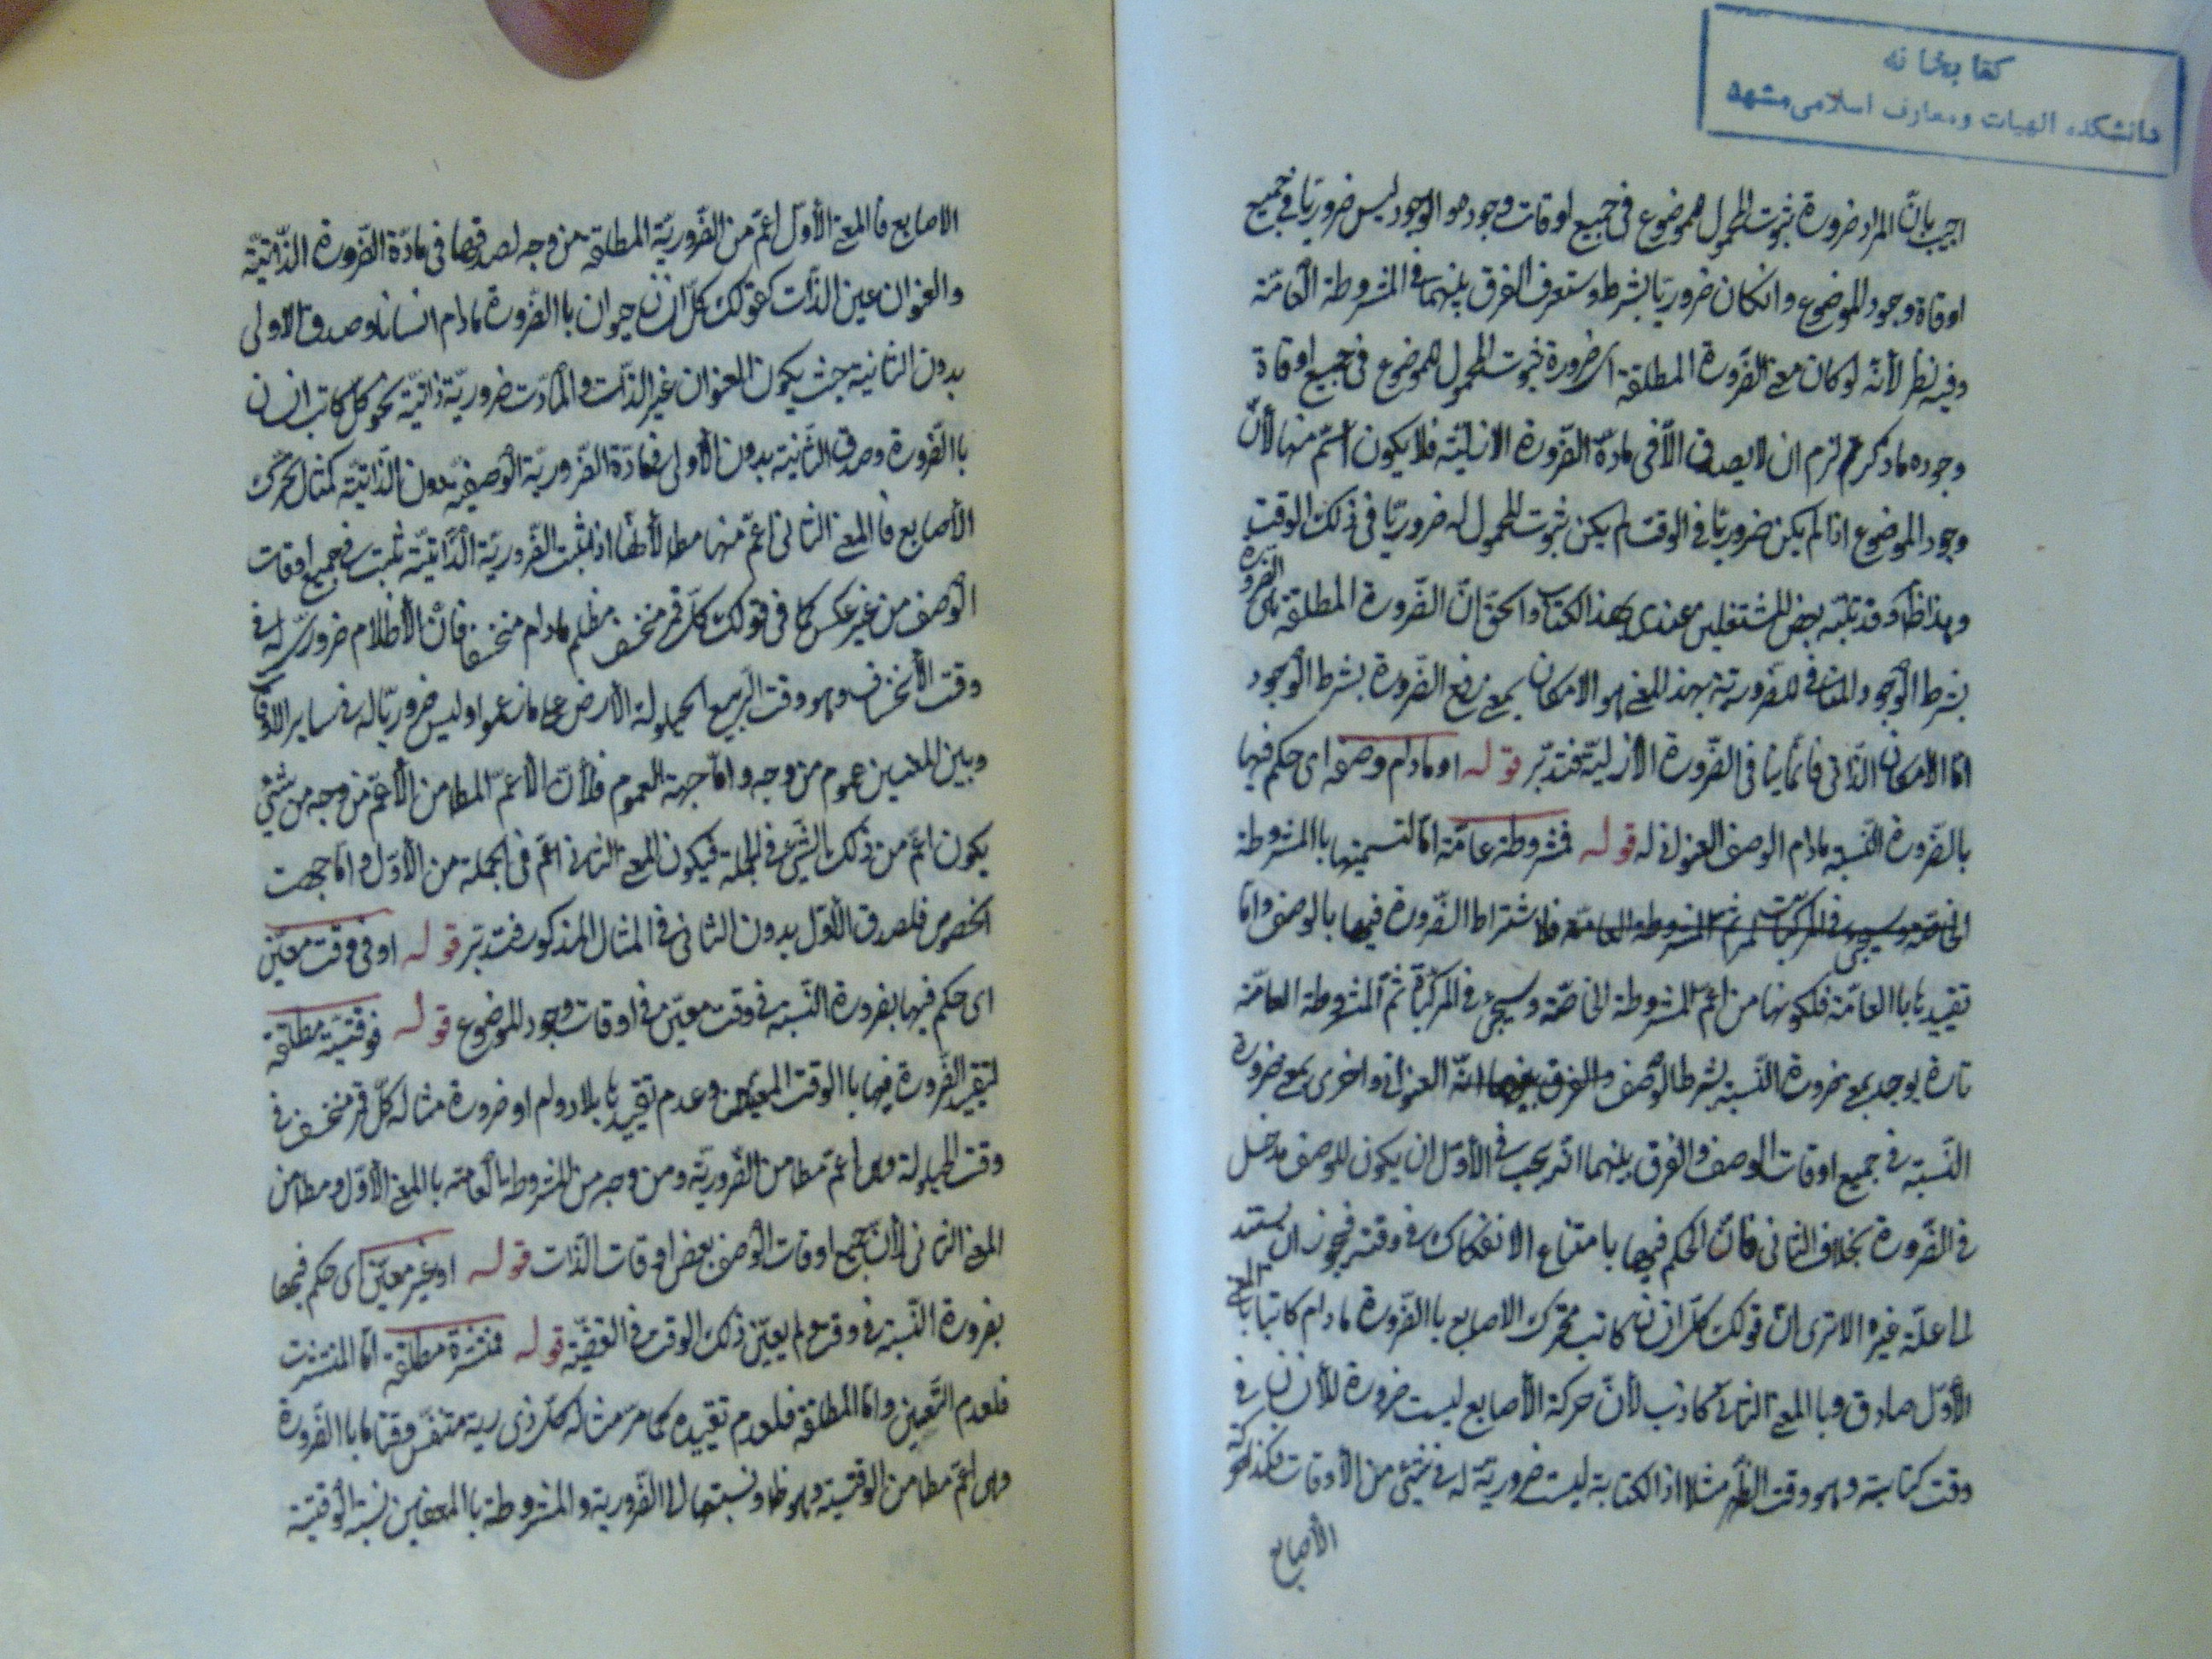 كتابخانه
دانشكده الهيات ومعارف اسلامى مشهد
اجيب بانّ المراد ضرورة ثبوت المحمول للموضوع فى جميع اوقات وجوده والوجود ليس ضروريّا فى جميع
اوقاة وجود الموضوع وانكان ضروريّا بشرط وستعرف الفرق بينهما فى المشروطة العامّة
وفيه نظر لأنّه لو كان معنى الضّرورة المطلقة ضرورة ثبوت المحمول للموضوع فى جميع اوقاة
وجوده ما ذكرتم لزم ان لا يصدق الّا فى مادّة الضّرورة الازليّة فلا يكون اعمّ منها لأنّ
وجود الموضوع اذا لم يكن ضروريّا فى الوقت لم يكن ثبوت المحمول له ضروريّا فى ذلك الوقت
وهذا ظ وقد نبّه بعض المشتغلين عندى بهذا الكتاب والحقّ انّ الضّرورة المطلقة هى الضرورة
بشرط الوجود المنافى للضّروريّة بهذا المعنى هو الامكان بمعنى رفع الضّرورة بشرط الوجود
امّا الامكان الذّاتى فانّما ينافى الضّرورة الأزليّة فتدبّر قوله او مادام وصفه اى حكم فيها
بالضّرورة النّسبة مادام الوصف العنوانى له قوله فمشروطة عامّة امّا لتسميتها باالمشروطة
فلاشتراط الضّرورة فيها بالوصف وامّا
تقييدها باالعامّة فلكونها من اعمّ المشروطة الخاصّة وسيجئ فى المركّباة ثمّ المشروطة العامّة
تارة يوجد بمعنى ضرورة النّسبة بشرط الوصف العنوانى واخرى بمعنى ضرورة
النّسبة فى جميع اوقات الوصف والفرق بينهما انّه يجب فى الأوّل ان يكون للوصف مدخل
فى الضّرورة بخلاف الثانى فانّ الحكم فيها بامتناع الانفكاك فى وقته فيجوز ان يستند
لما علّة غيره الا ترى انّ قولك كلّ كاتب متحرّك الاصابع باالضّرورة مادام كاتبا بالمعنى
الأوّل صادق وبا المعنى الثانى كاذب لأنّ حركة الأصابع ليست ضرورة للأنسان فى
وقت كتابته وهو وقت الظّهر مثلا اذ الكتابة ليست ضروريّة له فى شئ من الأوقات فكذا حركة
الأصابع
الاصابع فا المعنى الأوّل اعمّ من الضّروريّة المطلقة من وجه لصدقها فى مادّة الضّرورة الذّاتيّة
والعنوان عين الذّات كقولك كلّ انسان حيوان باالضّرورة مادام انسانا وصدق الاولى
بدون الثانية حيث يكون العنوان غير الذّات والمادّة ضروريّة ذاتيّة نحو كلّ كاتب انسان
باالضّرورة وصدق الثّانية بدون الأولى فى مادّة الضّروريّة الوصفيّة دون الذّاتيّة كمثال تحرّك
الأصابع فا المعنى الثانى اعمّ منها مطلقا اذ متى ثبت الضّروريّة الذّاتيّة ثبت فى جميع اوقات
الوصف من غير عكس كما فى قولك كلّ قمر منخسف مظلم مادام منخسفا فانّ الأظلام ضرورىّ له فى
وقت الأنخساف وهو وقت التّربيع لحيلولة الأرض على ما زعموا وليس ضروريّا له فى ساير الاوقات
وبين المعنيين عموم من وجه وامّا جهة العموم فلأنّ الأعمّ المطلق من الأعمّ من وجه من شئ
يكون اعمّ من ذلك الشّئ فى الجملة فيكون المعنى الثانى اعمّ فى الجملة من الأوّل وامّا جهت
الخصوص فلصدق الأوّل بدون الثانى فى المثال المذكور فتدبّر قوله او فى وقت معيّن
اى حكم فيها بضرورة النّسبة فى وقت معيّن فى اوقات وجود الموضوع قوله فوقتيّة مطلقة
لتقيّد الضّرورة فيها باالوقت المعيّن وعدم تقييدها بلا دوام او ضرورة مثاله كلّ قمر منخسف فى
وقت الحيلولة وهى اعمّ مطلقا من الضّروريّة ومن وجه من المشروطة العامّة باالمعنى الأوّل ومطلقا من
المعنى الثانى لأنّ جميع اوقات الوصف بعض اوقات الذّات قوله او غير معيّن اى حكم فيها
بضرورة النّسبة فى وقت لم يعيّن ذلك الوقت فى القضيّة قوله فمنتشرة مطلقة امّا المنتشرة
فلعدم التّعيّن وامّا المطلقة فلعدم تقييده كما مرّ مثاله كلّ ذى رية متنفّس وقتا ما باالضّرورة
وهى اعمّ مطلقا من الوقتيّة وهو ظ ونسبتها الى الضّرورية والمشروطة باالمعنيين نسبة الوقتيّة